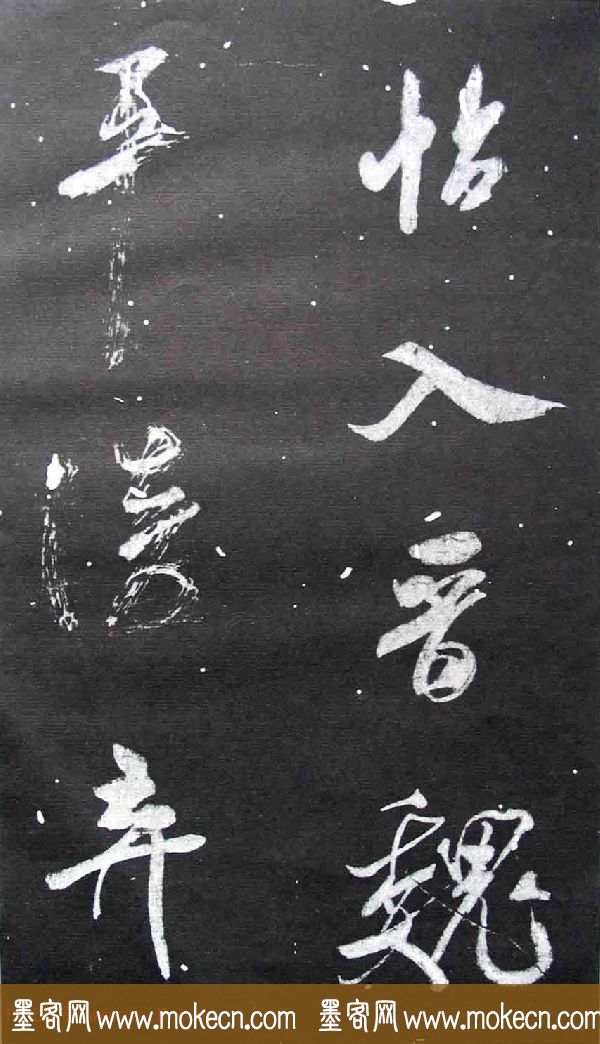 帖入晋魏
平淡弃
墨客网 www.mokecn.com 墨客网 www.mokecn.com